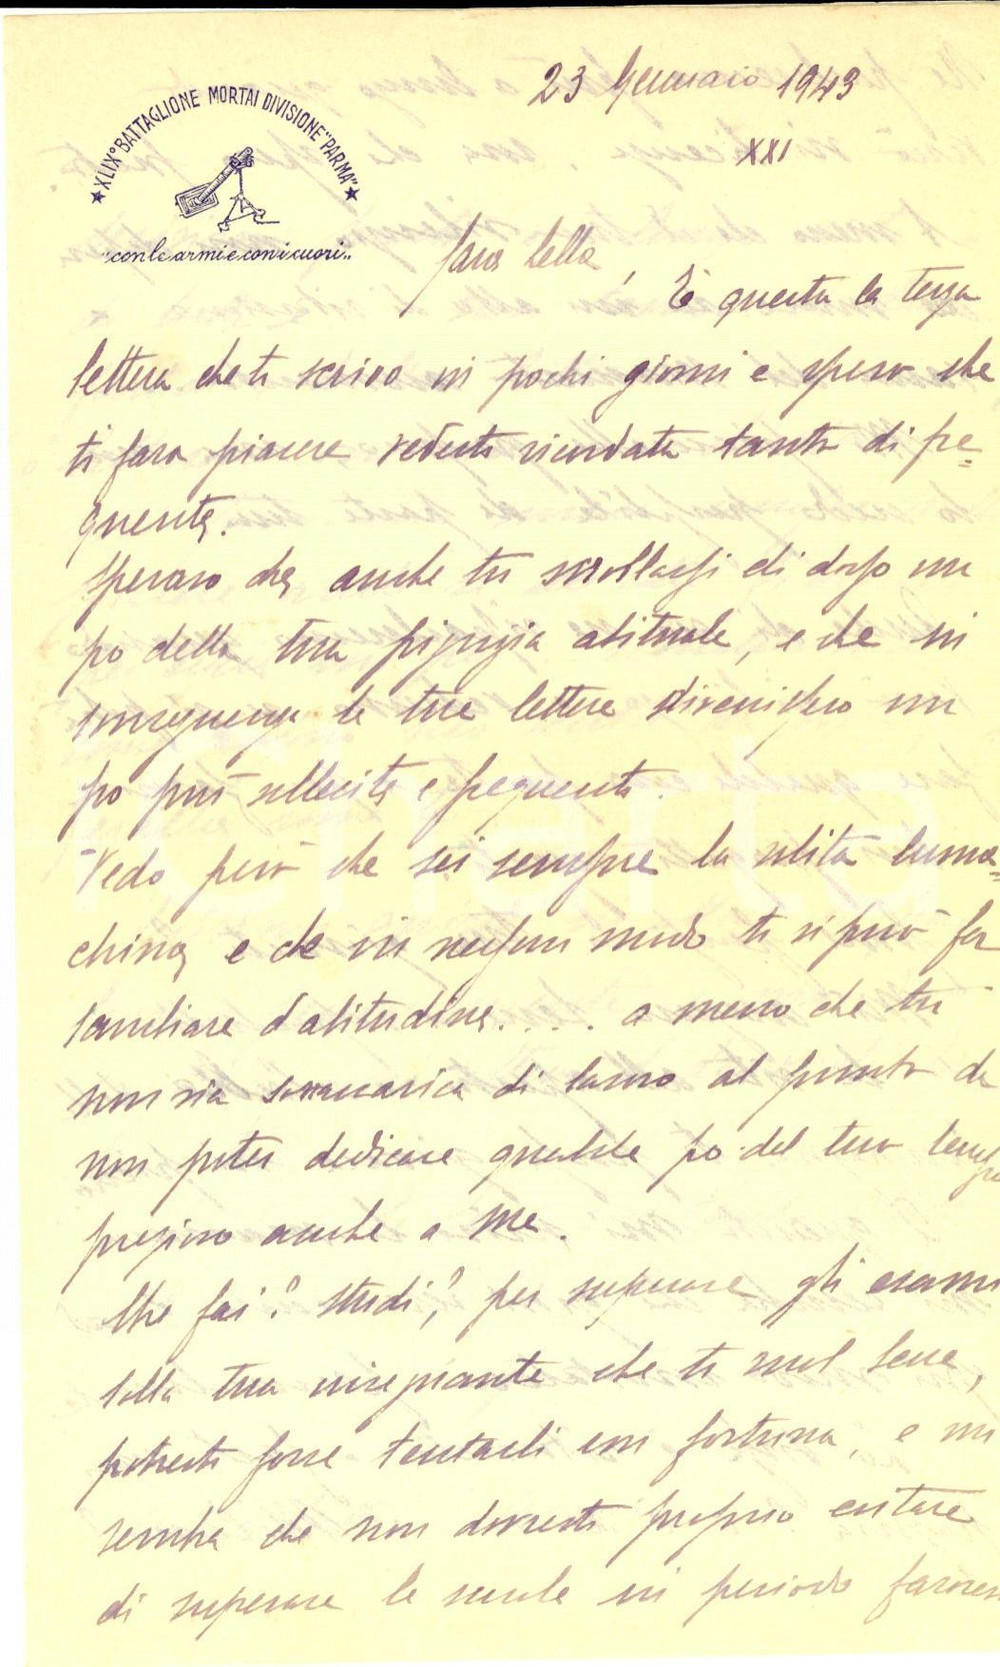 23 Gennaio 1943
XXI
★ XLIX° BATTAGLIONE MORTAI DIVISIONE "PARMA" ★
"con le armi e con i cuori"
Cara Lella, È questa la terza
lettera che ti scrivo in pochi giorni e spero che
ti farà piacere vederti ricordata tanto di fre=
quente.
Speravo che anche tu scrollassi di dosso un
po della tua pigrizia abituale, e che in
conseguenza le tue lettere divenissero un
po più sollecite e frequenti.
Vedo però che sei sempre la solita luma=
china e che in nessun modo ti si può far
cambiare d'abitudine.... a meno che tu
non sia sovracarica di lavoro al punto da
non poter dedicare qualche po del tuo tempo
prezioso anche a me.
Che fai? studi? per superare gli esami
colla tua insegnante che ti vuol bene,
potresti forse tentarli con fortuna, e mi
sembra che non dovresti proprio esitare
di superare le scuole in periodo